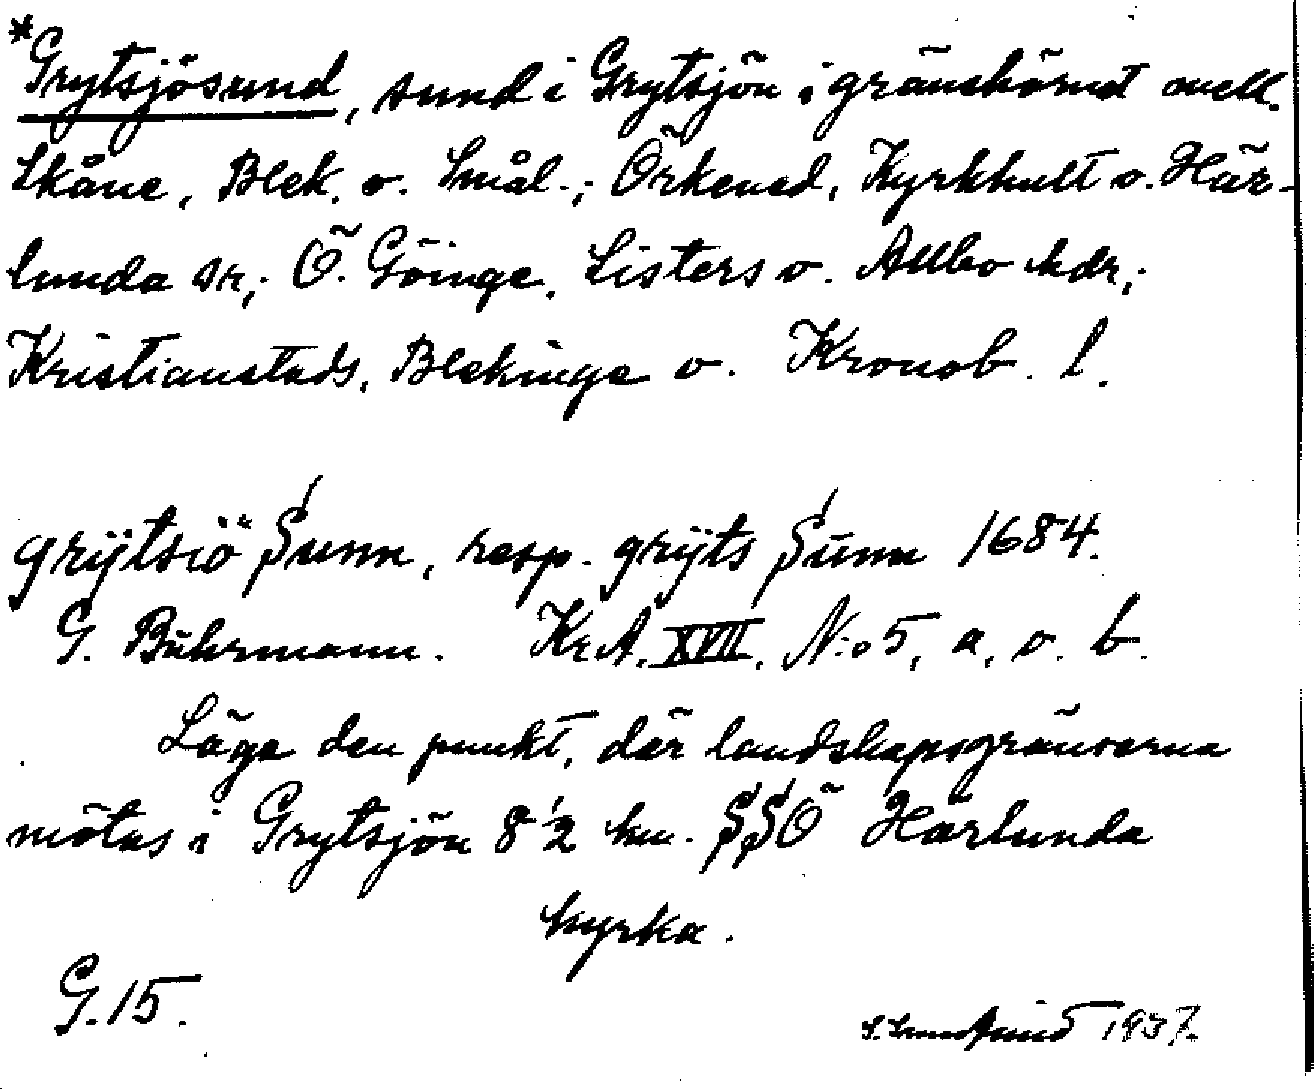 *Grytsjösund, sund i Grytsjön i gränshörnet mell.
Skåne, Blek. o. Smål.; Örkened, Kyrkhult o. Här-
lunda sr; Ö. Göinge, Listers o. Allbo hdr;
Kristianstads, Blekinge o. Kronob. l.
grÿtsiö Sunn, resp. grÿts Sunn 1684.
G. Buhrmann. KrA. XVII, N:o 5, a, o. b.
Läge den punkt, där landskapsgränserna
mötas i Grytsjön 8 ½ km. SSÖ Härlunda
kyrka.
G. 15.
1937.